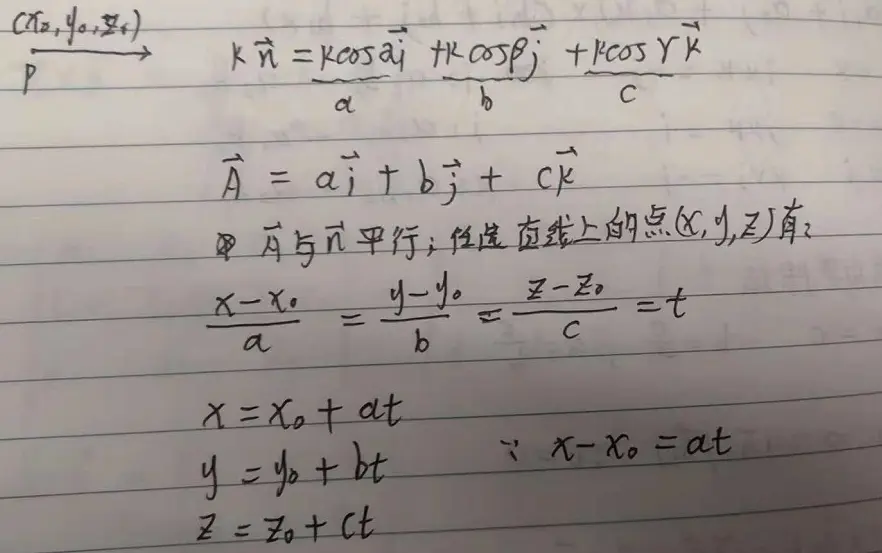 (x₀, y₀, z₀)
P
k n⃗ = kcosα i⃗ + kcosβ j⃗ + kcosγ k⃗
a b c
A⃗ = a i⃗ + b j⃗ + c k⃗
A⃗与n⃗平行,任选直线上的点(x, y, z)有:
(x-x₀)/a = (y-y₀)/b = (z-z₀)/c = t
x = x₀ + at
y = y₀ + bt ∵ x-x₀ = at
z = z₀ + ct